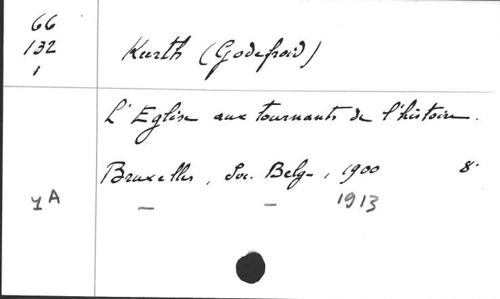 66
132
1
Kurth (Godefroid)
L'Eglise aux tournants de l'histoire.
Bruxelles, Soc. Belg-, 1900 8°
yA — — 1913